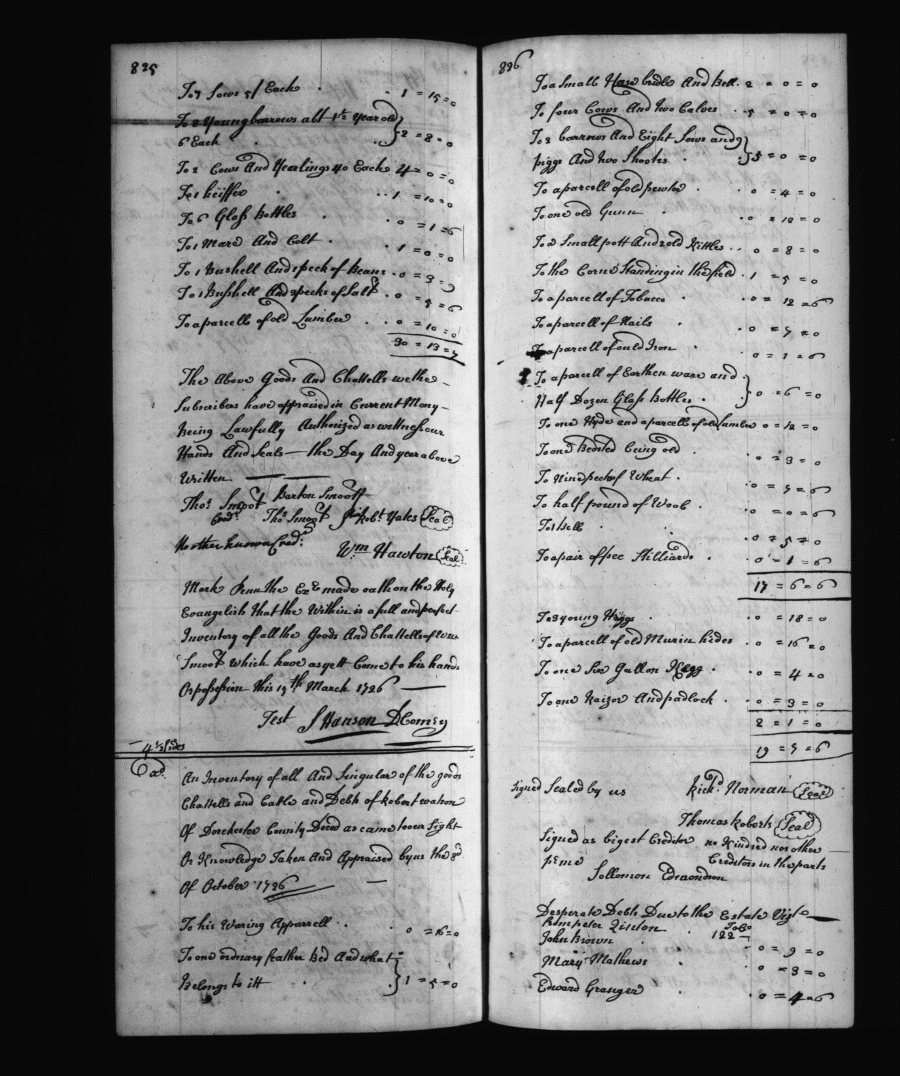 825
To 7 Sows 5/ Each . . 1 = 15 = 0
To 8 Young barrows abt 1½ Year old
6 Each . . 2 = 8 = 0
To 2 Cows And Yearlings 40 Each 4 = 0 = 0
To 1 heiffer . . 1 = 10 = 0
To 6 Glass bottles . . 0 = 1 = 6
To 1 Mare And Colt . . 1 = 0 = 0
To 1 Bushell And 1 peck of Beans . . 0 = 3 = 9
To 1 Bushell And 2 pecks of Salt . 0 = 5 = 6
To a parcell of old Lumber . . 0 = 10 = 0
30 = 13 = 7
The Above Goods And Chattells we the
Subscribers have appraised in Current Mony
Being Lawfully Authorized as wittness our
Hands And Seals the Day And year above
Written
Barton Smoot
Thos Smoot
Cred. Thos Smoot Robt Yates Seal
No other known Cred:
Wm Hawton Seal
Mark Penn the Exr made oath on the Holy
Evangelish that the Within is a full and perfect
Inventory of all the Goods And Chattells of Wm
Smoot which have as yett Come to his hands
Or possession this 19th March 1726
Test S Hanson D Comsy
4½ Sides
Ead.
An Inventory of all And Singular of the goods
Chattells and Catle and Debts of Robert watson
Of Dorchester County Deced as came to our Sight
Or Knowledge Taken And Appraised by us the 8d
Of October 1726
To his Waring Apparrell . . 0 = 16 = 0
To one ordnary feather bed And what
Belongs to itt . . 1 = 5 = 0
826
To a Small Hare bridle And Bell . 2 = 0 = 0
To four Cows And Two Calves . 5 = 0 = 0
To 2 barrows And Eight Sows and 9
piggs And two Shootes . 5 = 0 = 0
To a parcell of old pewter . . 0 = 4 = 0
To one old Gunn . . 0 = 10 = 0
To a Small pott And 2 old Kittles . . 0 = 8 = 0
To the Corne Standing in the feild . 1 = 5 = 0
To a parcell of Tobacco . . 0 = 12 = 6
To a parcell of Nails . . 0 = 7 = 0
To a parcell of ould Iron . . 0 = 1 = 6
To a parcell of Earthen ware and
Half Dozen Glass Bottles . 0 = 6 = 0
To one Hyde and a parcell of old Lumber 0 = 12 = 0
To one Bedsted being old . . 0 = 3 = 0
To Nine pecks of Wheat . . 0 = 5 = 6
To half pound of Wool . . 0 = 0 = 6
To 1 bell . . 0 = 5 = 0
To a pair of Stilliards . . 0 = 1 = 6
17 = 6 = 6
To 3 young Hoggs . . 0 = 18 = 0
To a parcell of old Murin hides . 0 = 16 = 0
To one Six Gallon Kegg . . 0 = 4 = 0
To one Raizor And padlock . . 0 = 3 = 0
2 = 1 = 0
19 = 7 = 6
Signed Sealed by us Richd Norman Seal
Thomas Roberts Seal
Signed as bigest Creditor no Kindred nor other
pr me Creditors in these parts
Sollomon Edmondson
Desperate Debts Due to the Estate Vizt
Tobo
122
John Brown . . 0 = 9 = 0
Mary Mathews . . 0 = 3 = 0
Edward Granger . . 0 = 4 = 6